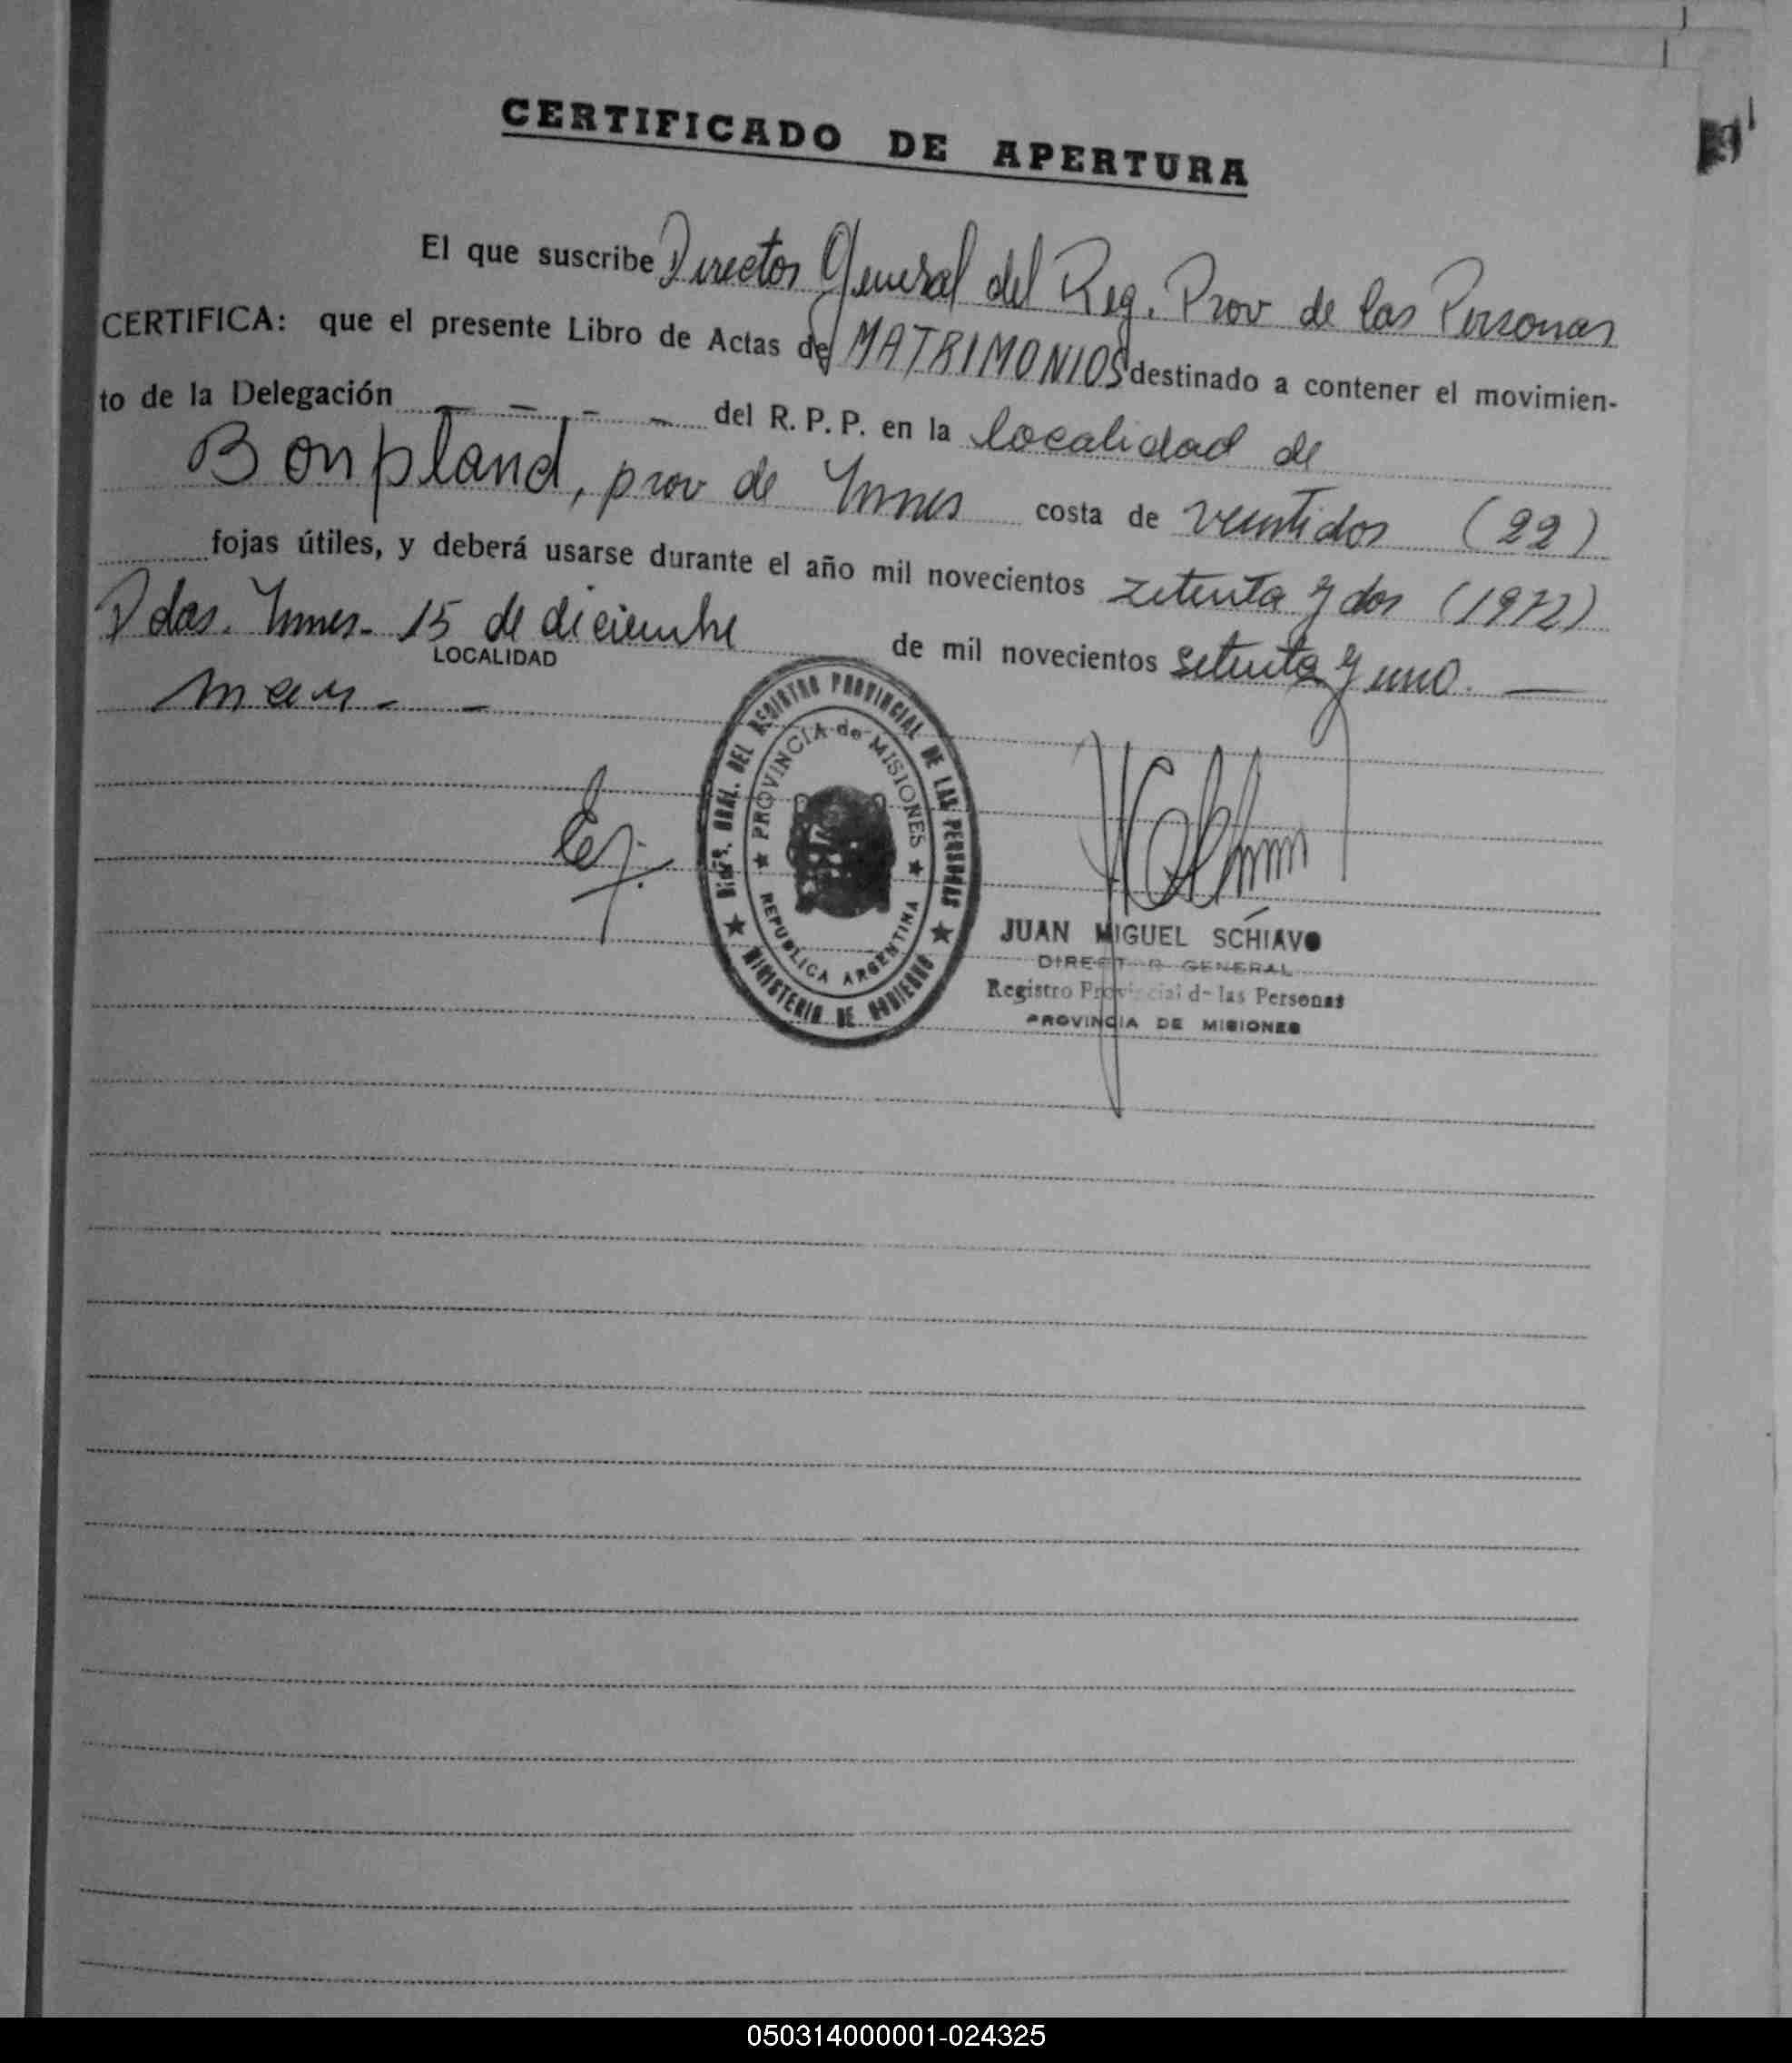 CERTIFICADO DE APERTURA
El que suscribe Director General del Reg. Prov de las Personas
CERTIFICA: que el presente Libro de Actas de MATRIMONIOS destinado a contener el movimien-
to de la Delegación — — - — del R. P. P. en la localidad de
Bonpland, prov de costa de veintidos (22)
fojas útiles, y deberá usarse durante el año mil novecientos zetenta y dos (1972)
Pdas. 15 de diciembre de mil novecientos setenta y uno. —
LOCALIDAD
DIREC. GRAL. DEL REGISTRO PROVINCIAL DE LAS PERSONAS
PROVINCIA de MISIONES
REPUBLICA ARGENTINA
MINISTERIO DE GOBIERNO
JUAN MIGUEL SCHIAVO
DIRECTOR GENERAL
Registro Provincial de las Personas
PROVINCIA DE MISIONES
050314000001-024325